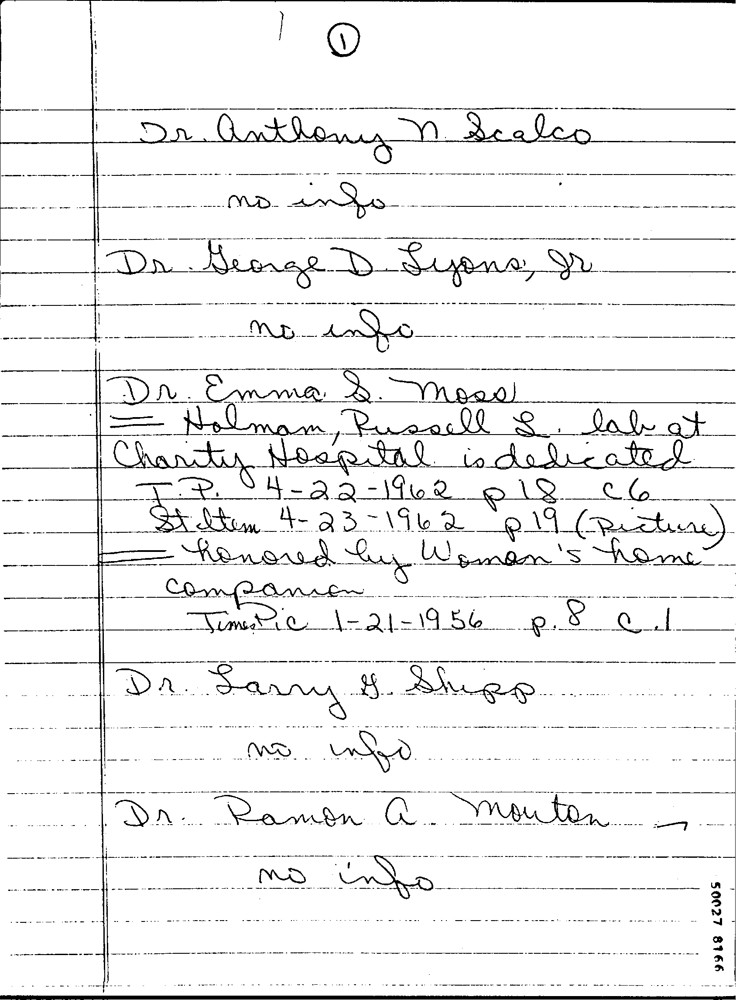 1
Dr. Anthony N. Scalco
no info
Dr. George D. Lyons, Jr
no info
Dr. Emma S. Moss
= Holmam, Russell L. lab at
Charity Hospital is dedicated
T.P. 4-22-1962 p18 c6
St Item 4-23-1962 p19 (picture)
= honored by Woman's home
companion
Times Pic 1-21-1956 p. 8 c.1
Dr. Larry G. Shipp
no info
Dr. Ramon A. Mouton
no info
50027 8166